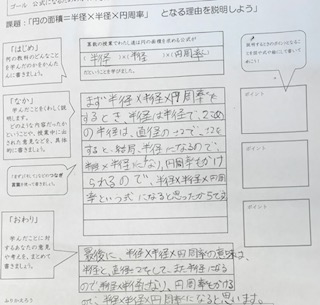 ゴール 公式になる
課題：「円の面積＝半径×半径×円周率」 となる理由を説明しよう」
「はじめ」
何の教科のどんなことを学んだのかをかんたんに書きましょう。
算数の授業でわたし達は円の面積を求める公式が
(半径)×(半径)×(円周率)
ということを学びました。
「なか」
学んだことをくわしく説明します。
どのような内容だったかということや、授業中に出された意見などを、具体的に書きましょう。
まず半径×半径×円周率を
するとき、半径は半径で、2つめ
の半径は、直径の÷2で、÷2を
すると、結局、半径になるので、
半径×半径になり、円周率をかけ
られるので、半径×半径×円周
率という式になると思ったからです
ポイント
ポイント
ポイント
「おわり」
学んだことに対するあなたの意見や考えを、まとめて書きましょう。
最後に、半径×半径×円周率の意味は、
半径と、直径÷2をして、また半径になる
ので半径×半径になり、円周率をかける
ので、半径×半径×円周率になると思います。
ふりかえろう